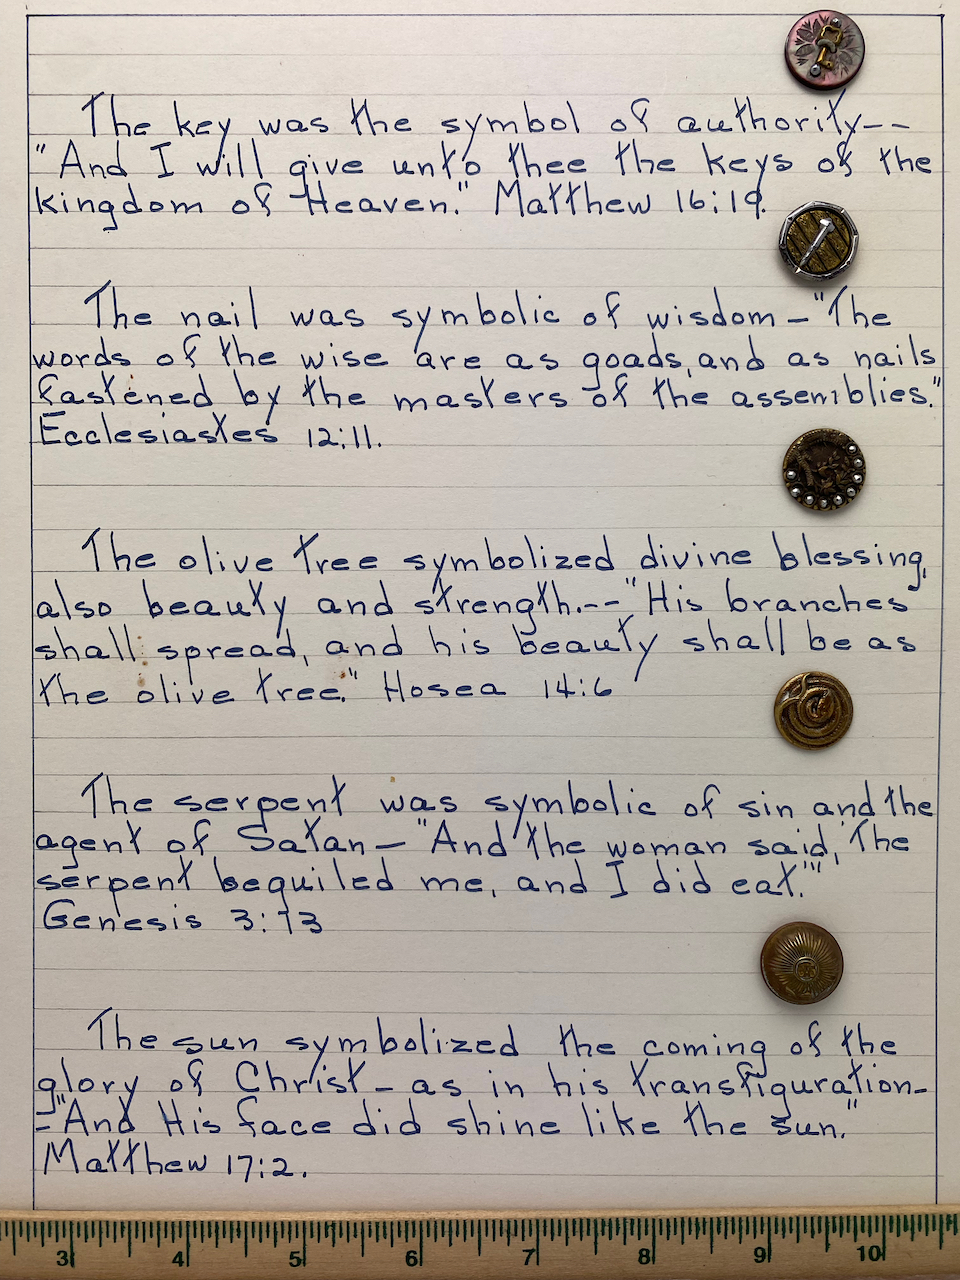 The key was the symbol of authority--
"And I will give unto thee the keys of the
kingdom of Heaven." Matthew 16:19.
The nail was symbolic of wisdom — "The
words of the wise are as goads, and as nails
fastened by the masters of the assemblies."
Ecclesiastes 12:11.
The olive tree symbolized divine blessing,
also beauty and strength.--"His branches
shall spread, and his beauty shall be as
the olive tree." Hosea 14:6
The serpent was symbolic of sin and the
agent of Satan — "And the woman said, 'The
serpent beguiled me, and I did eat.'"
Genesis 3:13
The sun symbolized the coming of the
glory of Christ – as in his transfiguration-
-"And His face did shine like the sun."
Matthew 17:2.
3 4 5 6 7 8 9 10